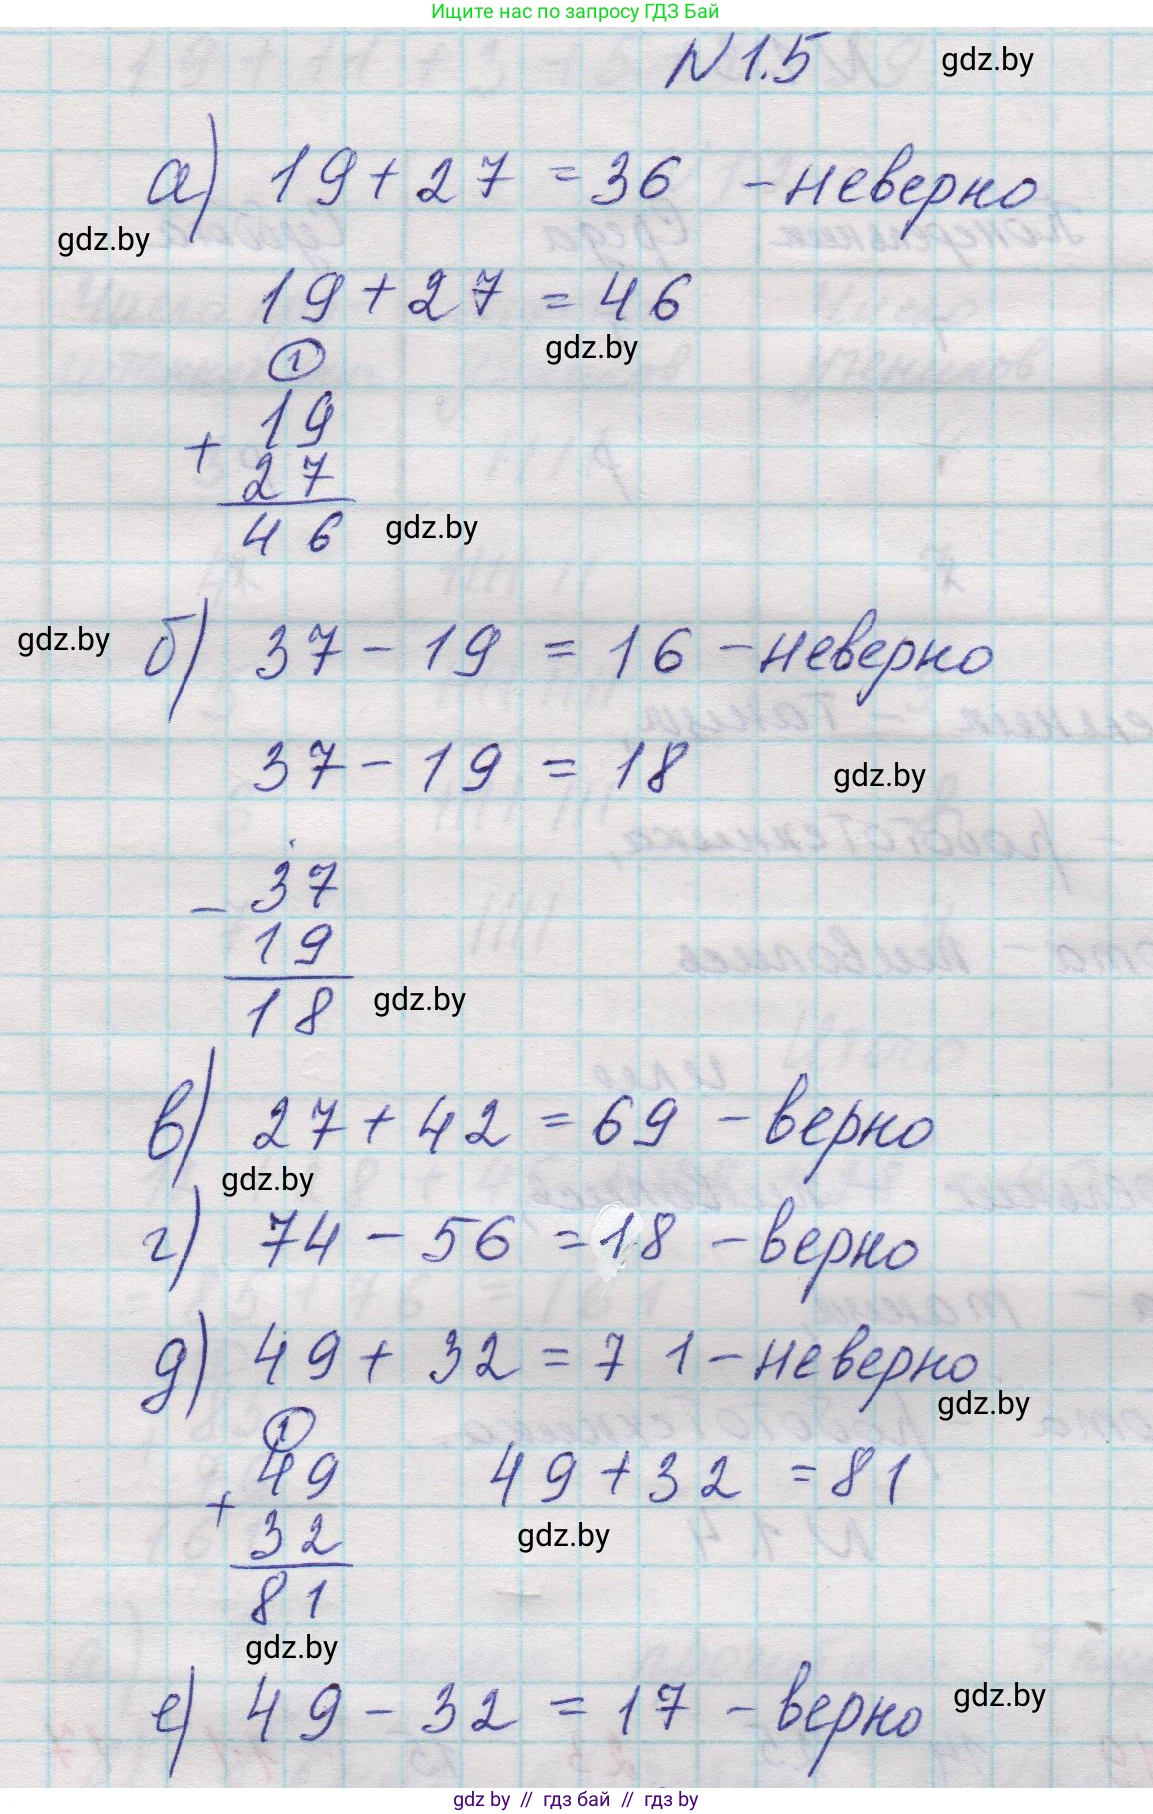 Ищите нас по запросу ГДЗ Бай
N 1.5
gdz.by
а) 19 + 27 = 36 - неверно
gdz.by
19 + 27 = 46
gdz.by
1
19
+
27
46
gdz.by
gdz.by
б) 37 - 19 = 16 - неверно
37 - 19 = 18
gdz.by
37
-
19
18
gdz.by
в) 27 + 42 = 69 - верно
gdz.by
г) 74 - 56 = 18 - верно
д) 49 + 32 = 71 - неверно
gdz.by
1
49
+
32
81
49 + 32 = 81
gdz.by
gdz.by
е) 49 - 32 = 17 - верно
gdz.by
gdz by // гдз бай // gdz by